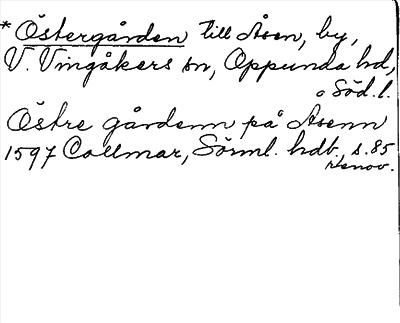 * Östergården till Åsen, by,
V. Vingåkers sn, Oppunda hd,
Söd. l.
Östre gårdenn på Åsenn
1597 Collmar, Sörml. hdb. s. 85